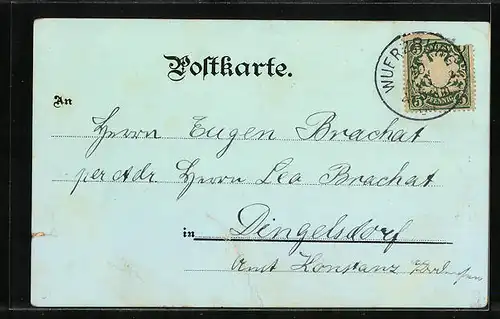 Postkarte.
WUERZB
5 5
An
Herrn Eugen Brachat
per Adr. Herrn Leo Brachat
in Dingelsdorf
Amt Konstanz